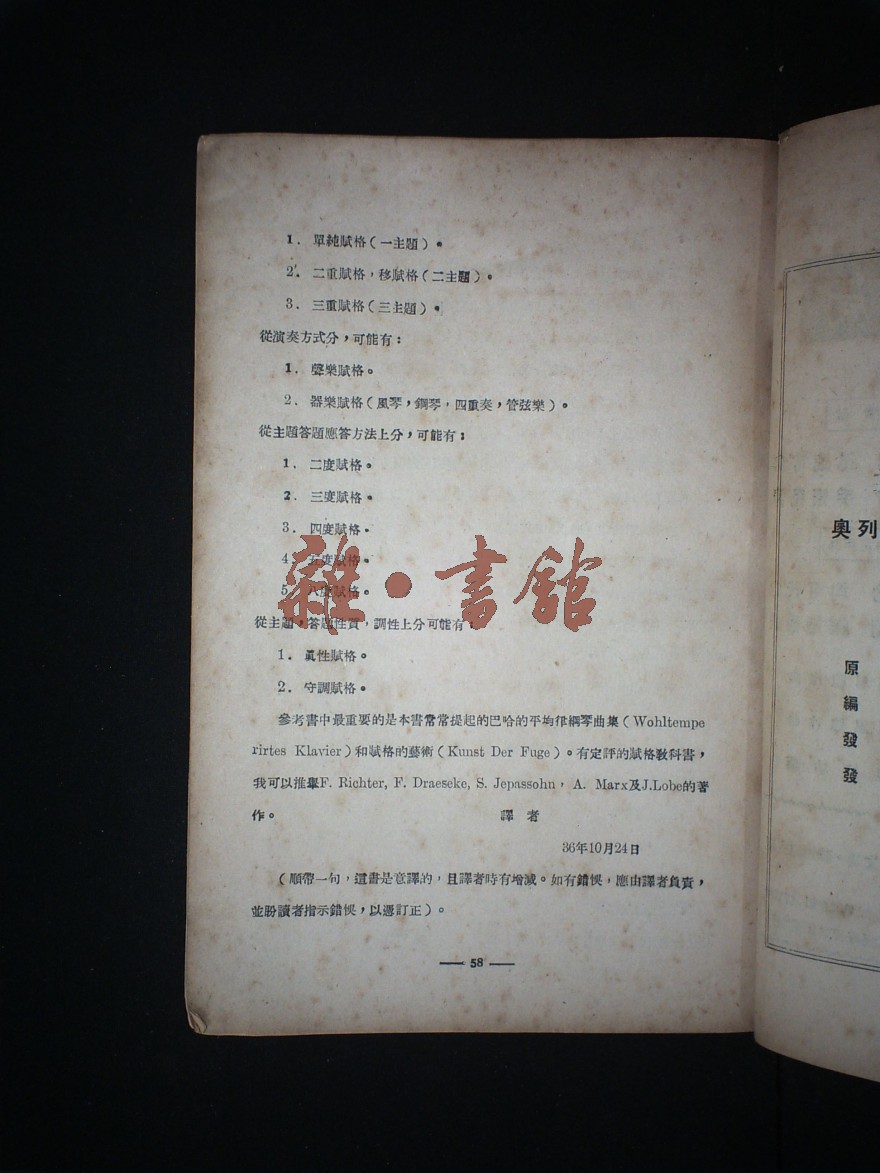 1. 單純賦格(一主題)。
2. 二重賦格,移賦格(二主題)。
3. 三重賦格(三主題)。
從演奏方式分,可能有:
1. 聲樂賦格。
2. 器樂賦格(風琴,鋼琴,四重奏,管弦樂)。
從主題答題應答方法上分,可能有:
1. 二度賦格。
2. 三度賦格。
3. 四度賦格。
4. 五度賦格。
5. 八度賦格。
從主題,答題性質,調性上分可能有:
1. 眞性賦格。
2. 守調賦格。
參考書中最重要的是本書常常提起的巴哈的平均律鋼琴曲集(Wohltempe
rirtes Klavier)和賦格的藝術(Kunst Der Fuge)。有定評的賦格敎科書,
我可以推舉F. Richter, F. Draeseke, S. Jepassohn, A. Marx及J.Lobe的著
作。 譯者
36年10月24日
(順帶一句,這書是意譯的,且譯者時有增减。如有錯悞,應由譯者負責,
並盼讀者指示錯悞,以慿訂正)。
— 58 —
雜·書館
奧列
原
編
發
發